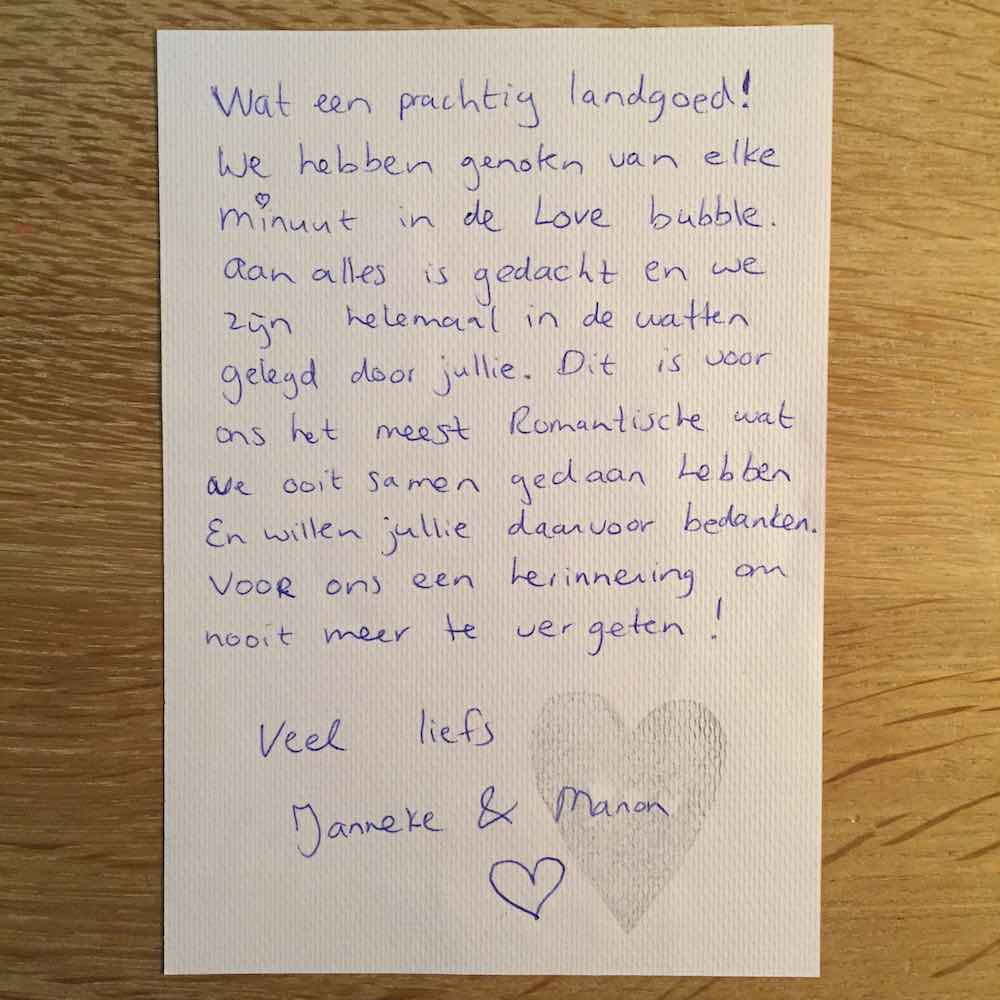 Wat een prachtig landgoed!
We hebben genoten van elke
minuut in de Love bubble.
Aan alles is gedacht en we
zijn helemaal in de watten
gelegd door jullie. Dit is voor
ons het meest Romantische wat
we ooit samen gedaan hebben
En willen jullie daarvoor bedanken.
VOOR ons een herinnering om
nooit meer te vergeten!
Veel liefs
Janneke & Manon